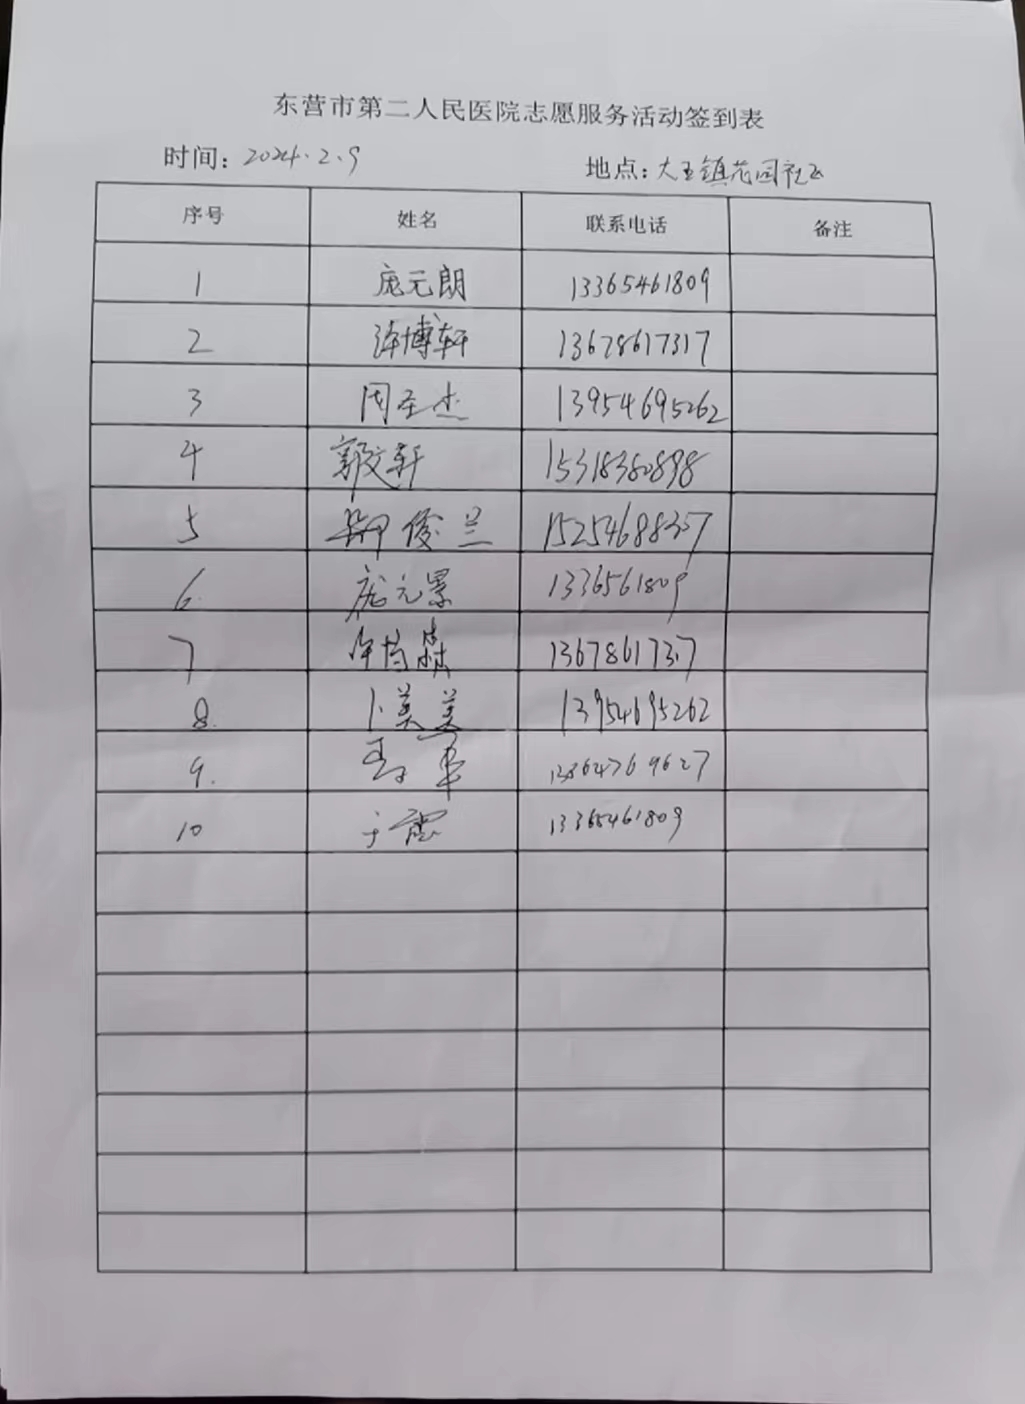 东营市第二人民医院志愿服务活动签到表
时间：2024.2.9 地点：大王镇花园社区
序号 姓名 联系电话 备注
1 庞元朗 13365461809
2 博轩 13678617317
3 周圣杰 13954695262
4 郭文轩 15318380898
5 俊兰 15254688357
6. 庞元景 1336561809
7 13678617317
8. 卜美美 13954695262
9.
10 于霞 13365461809